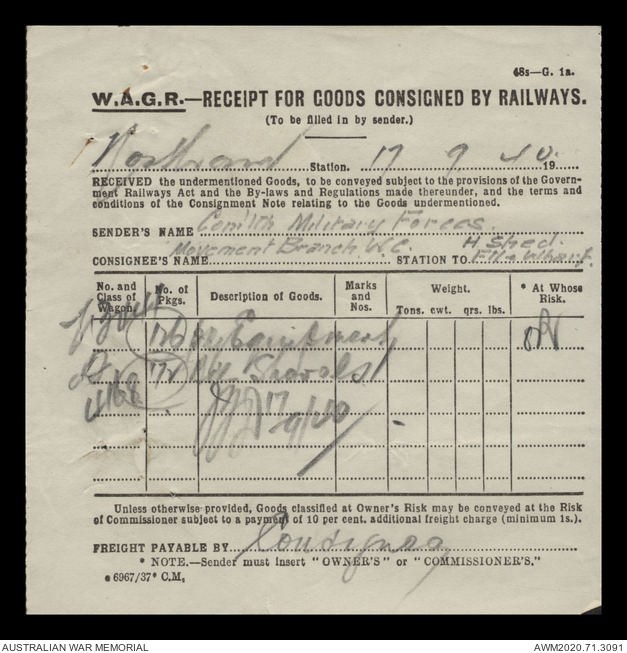 48s—G. 1a.
W.A.G.R.—RECEIPT FOR GOODS CONSIGNED BY RAILWAYS.
(To be filled in by sender.)
Station. 17 9 40 19
RECEIVED the undermentioned Goods, to be conveyed subject to the provisions of the Govern-
ment Railways Act and the By-laws and Regulations made thereunder, and the terms and
conditions of the Consignment Note relating to the Goods undermentioned.
SENDER'S NAME Com'lth Military Forces.
Movement Branch W.C. H Shed.
CONSIGNEE'S NAME STATION TO Wharf.
No. and Class of Wagon. No. of Pkgs. Description of Goods. Marks and Nos. Weight. * At Whose Risk.
Tons. cwt. qrs. lbs.
Equipment OR
Shovels
17
9/40
Unless otherwise provided, Goods classified at Owner's Risk may be conveyed at the Risk
of Commissioner subject to a payment of 10 per cent. additional freight charge (minimum 1s.).
FREIGHT PAYABLE BY Consignee
* NOTE.—Sender must insert "OWNER'S" or "COMMISSIONER'S."
6967/37* C.M.
AUSTRALIAN WAR MEMORIAL AWM2020.71.3091